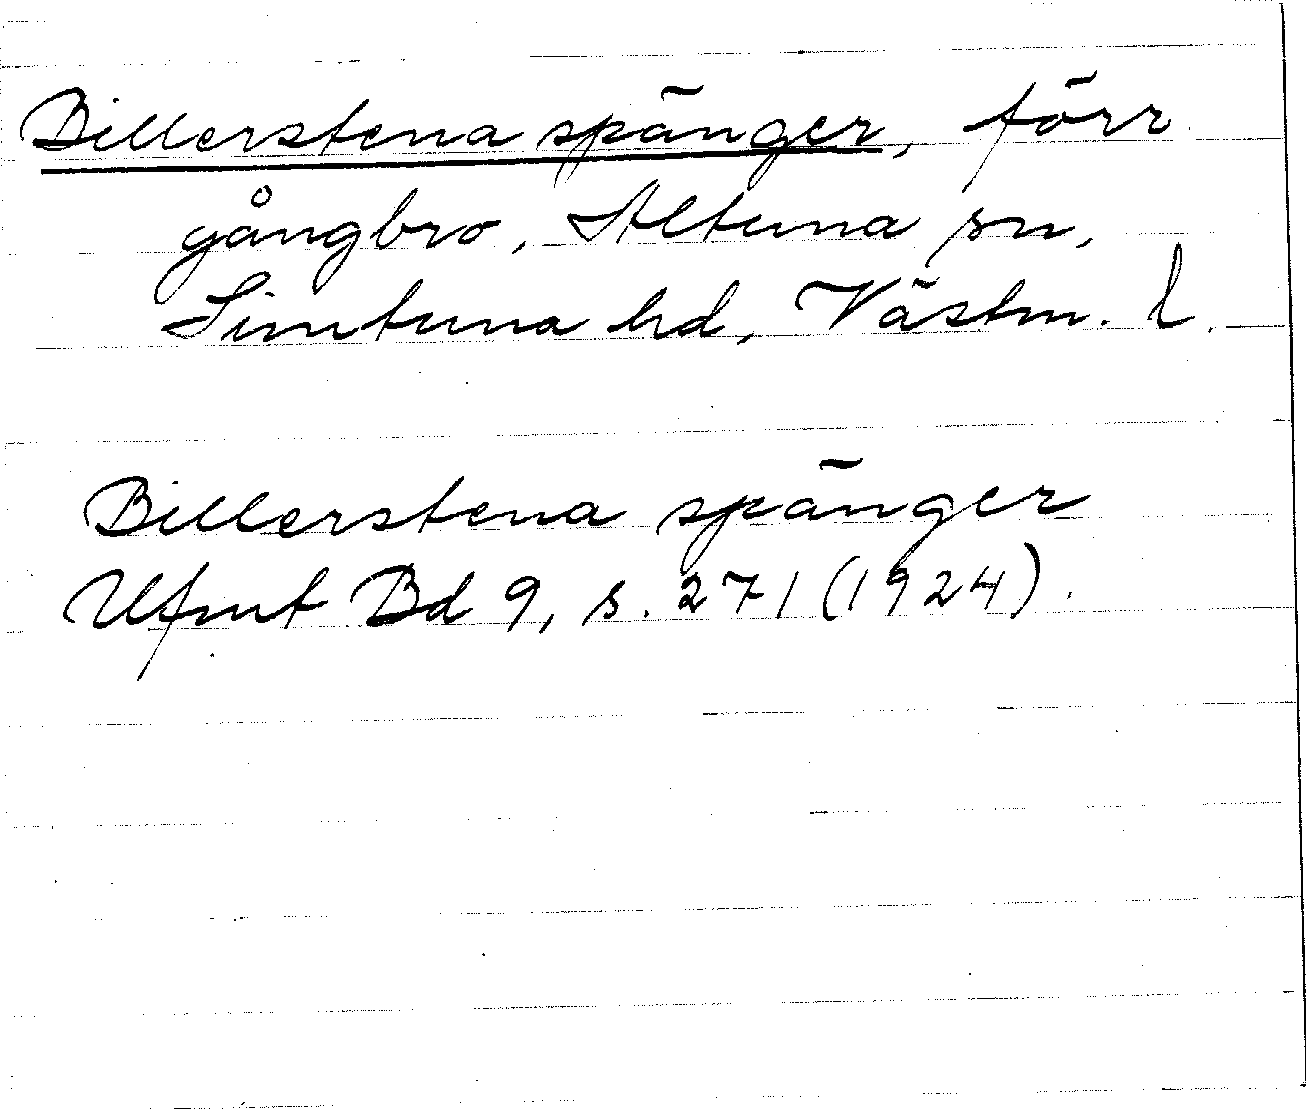 Billerstena spänger, förr
gångbro, Altuna sn,
Simtuna hd, Västm. l.
Billerstena spänger
Ufmt Bd 9, s. 271 (1924).